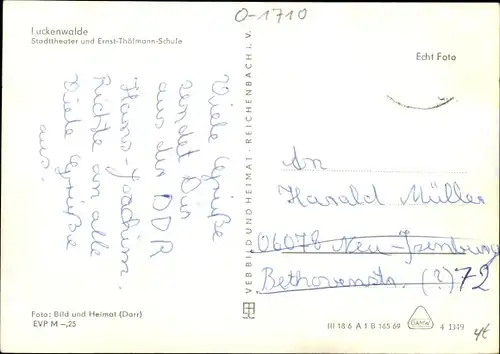 O-1710
Luckenwalde
Stadttheater und Ernst-Thälmann-Schule
Echt Foto
Viele Grüße
sendet Dir
aus der DDR
Hans-Joachim.
Richte an alle
Viele Grüße
aus.
VEB BILD UND HEIMAT · REICHENBACH I. V.
An
Harald Müller
06078 Neu-Isenburg
Bethovenstr. (?) 72
Foto: Bild und Heimat (Darr)
EVP M –,25
III 18 6 A 1 B 165 69
4 1349